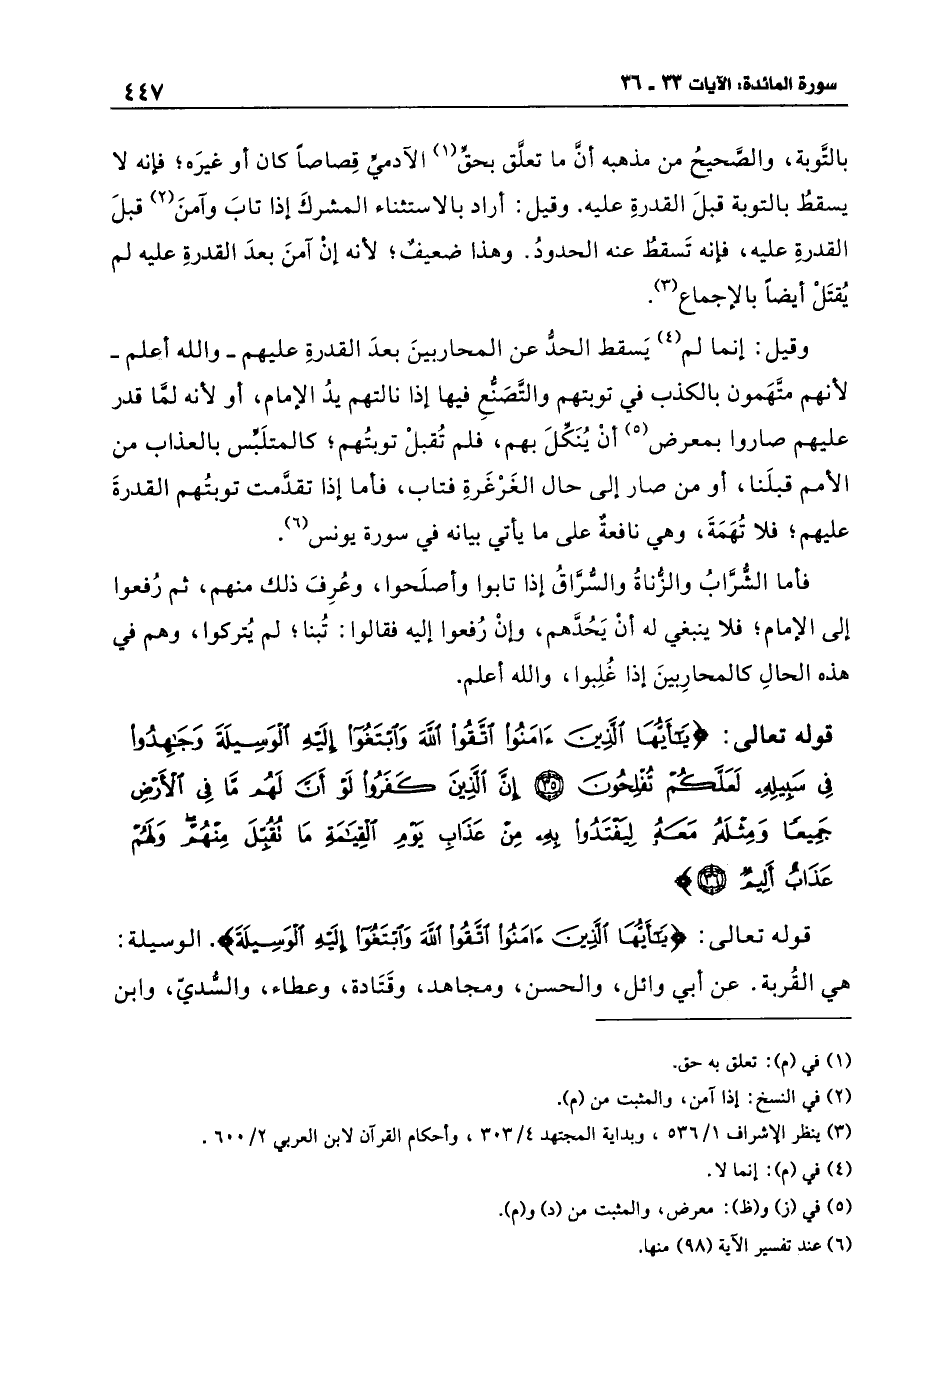 سورة المائدة: الآيات ٣٣ - ٣٦
٤٤٧
بالتَّوبة، والصَّحيحُ من مذهبه أنَّ ما تعلَّق بحقِّ(١) الآدميِّ قِصاصاً كان أو غيرَه؛ فإنه لا
يسقطُ بالتوبة قبلَ القدرةِ عليه. وقيل: أراد بالاستثناء المشركَ إذا تابَ وآمنَ(٢) قبلَ
القدرةِ عليه، فإنه تَسقطُ عنه الحدودُ. وهذا ضعيفٌ؛ لأنه إنْ آمنَ بعدَ القدرةِ عليه لم
يُقتَلْ أيضاً بالإجماع(٣).
وقيل: إنما لم(٤) يَسقط الحدُّ عن المحاربينَ بعدَ القدرةِ عليهم ـ والله أعلم ـ
لأنهم متَّهَمون بالكذب في توبتهم والتَّصَنُّعِ فيها إذا نالتهم يدُ الإمام، أو لأنه لمَّا قدر
عليهم صاروا بمعرض(٥) أنْ يُنَكِّلَ بهم، فلم تُقبلْ توبتُهم؛ كالمتلَبِّس بالعذاب من
الأمم قبلَنا، أو من صار إلى حال الغَرْغَرةِ فتاب، فأما إذا تقدَّمت توبتُهم القدرةَ
عليهم؛ فلا تُهَمَةَ، وهي نافعةٌ على ما يأتي بيانه في سورة يونس(٦).
فأما الشُّرَّابُ والزُّناةُ والسُّرَّاقُ إذا تابوا وأصلَحوا، وعُرِفَ ذلك منهم، ثم رُفعوا
إلى الإمام؛ فلا ينبغي له أنْ يَحُدَّهم، وإنْ رُفعوا إليه فقالوا: تُبنا؛ لم يُتركوا، وهم في
هذه الحالِ كالمحارِبينَ إذا غُلِبوا، والله أعلم.
قوله تعالى: ﴿يَٰٓأَيُّهَا ٱلَّذِينَ ءَامَنُوا۟ ٱتَّقُوا۟ ٱللَّهَ وَٱبْتَغُوٓا۟ إِلَيْهِ ٱلْوَسِيلَةَ وَجَٰهِدُوا۟
فِى سَبِيلِهِۦ لَعَلَّكُمْ تُفْلِحُونَ ۝٣٥ إِنَّ ٱلَّذِينَ كَفَرُوا۟ لَوْ أَنَّ لَهُم مَّا فِى ٱلْأَرْضِ
جَمِيعًا وَمِثْلَهُۥ مَعَهُۥ لِيَفْتَدُوا۟ بِهِۦ مِنْ عَذَابِ يَوْمِ ٱلْقِيَٰمَةِ مَا تُقُبِّلَ مِنْهُمْ ۖ وَلَهُمْ
عَذَابٌ أَلِيمٌ ۝٣٦﴾
قوله تعالى: ﴿يَٰٓأَيُّهَا ٱلَّذِينَ ءَامَنُوا۟ ٱتَّقُوا۟ ٱللَّهَ وَٱبْتَغُوٓا۟ إِلَيْهِ ٱلْوَسِيلَةَ﴾. الوسيلة:
هي القُربة. عن أبي وائل، والحسن، ومجاهد، وقَتَادة، وعطاء، والسُّديّ، وابن
(١) في (م): تعلق به حق.
(٢) في النسخ: إذا آمن، والمثبت من (م).
(٣) ينظر الإشراف ٥٣٦/١ ، وبداية المجتهد ٣٠٣/٤ ، وأحكام القرآن لابن العربي ٦٠٠/٢ .
(٤) في (م): إنما لا.
(٥) في (ز) و(ظ): معرض، والمثبت من (د) و(م).
(٦) عند تفسير الآية (٩٨) منها.